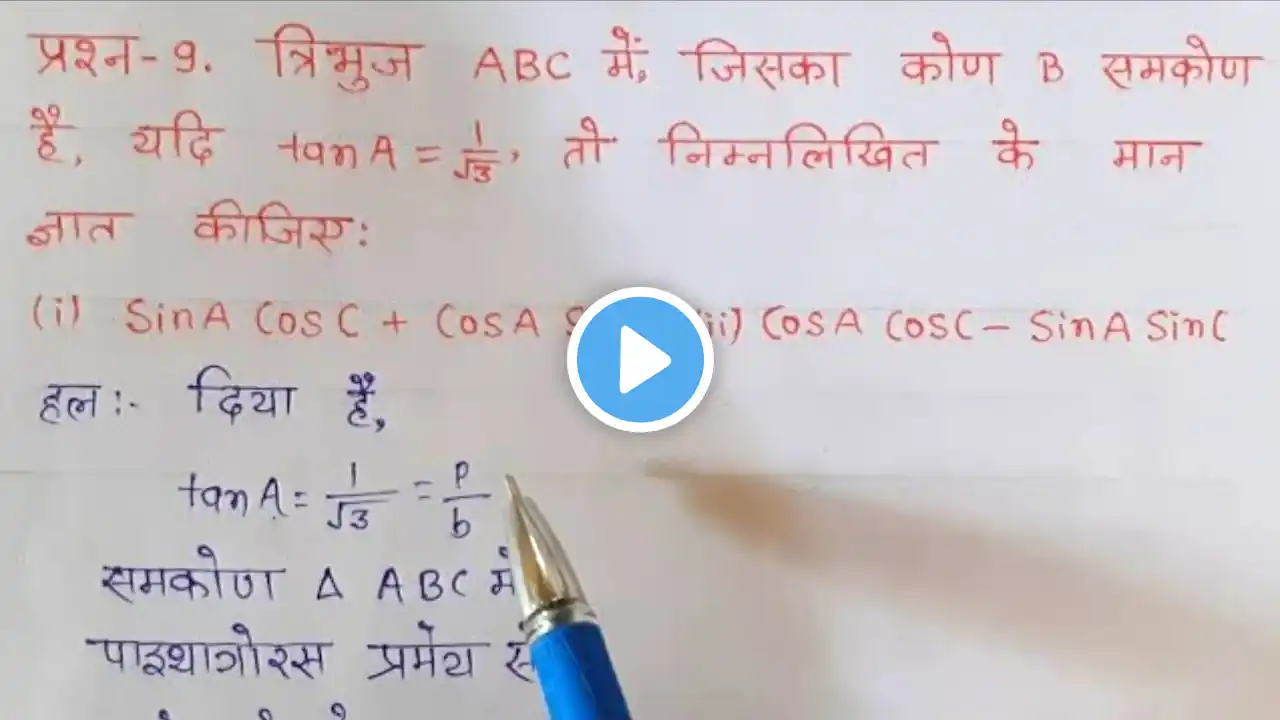 प्रश्न-9. त्रिभुज ABC में, जिसका कोण B समकोण
है, यदि tan A = 1/√3, तो निम्नलिखित के मान
ज्ञात कीजिए:
(i) Sin A Cos C + Cos A (ii) Cos A Cos C - Sin A Sin C
हल:- दिया है,
tan A = 1/√3 = P/b
समकोण Δ ABC में
पाइथागोरस प्रमेय से